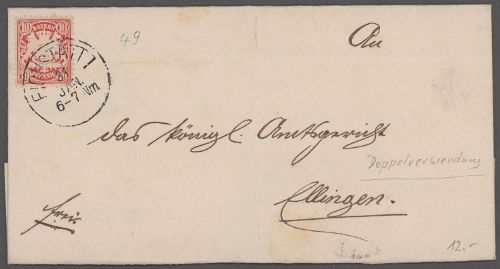 10 BAYERN 10
PFENNIG
EICHSTÄTT I
31
JAN.
6-7 Nm
49
An
das königl. Amtsgericht
Doppelverwendung
Ellingen.
frei
12.-